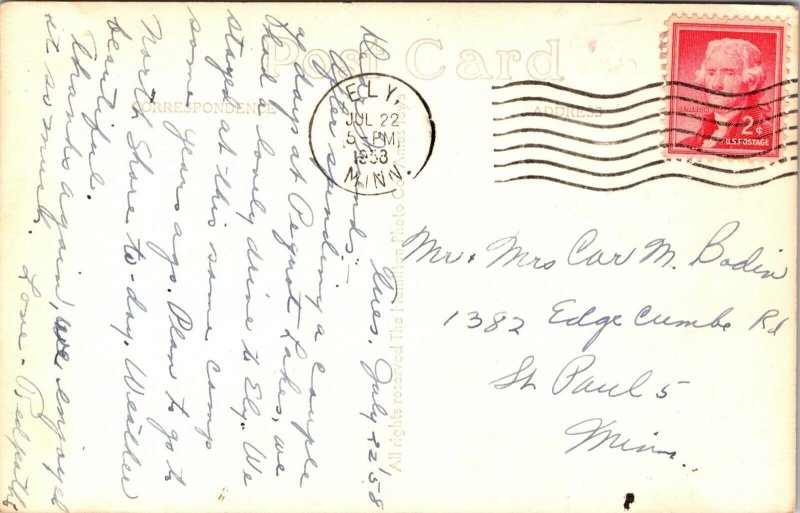 Post Card
CORRESPONDENCE
ADDRESS
ELY,
JUL 22
5 PM
1958
MINN.
2¢
U.S. POSTAGE
Tues. July 22 '58
Dear Friends:—
After spending a couple
of days at Pequot Lakes, we
had a lovely drive to Ely. We
stayed at this same camp
some years ago. Plan to go to
North Shore to-day. Weather
beautiful.
Thanks again, we enjoyed
it so much.
Love - Redpaths
All rights reserved The Hamilton Photo Co. Ames Iowa
Mr. & Mrs Car M. Bodin
1382 Edgecumbe Rd
St Paul 5
Minn.